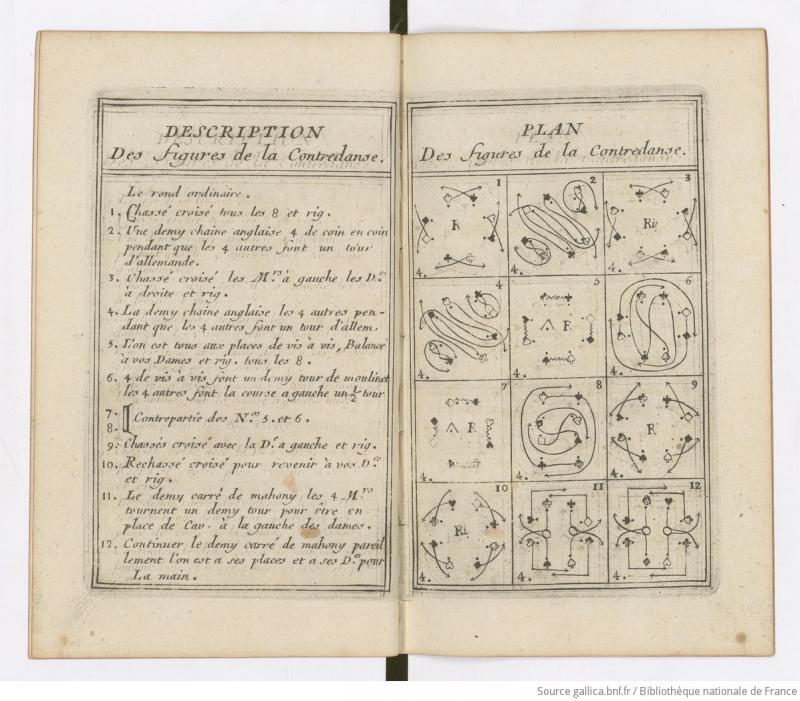 DESCRIPTION
Des figures de la Contredanse.
Le rond ordinaire.
1. Chassé croisé tous les 8 et rig.
2. Une demy chaîne anglaise 4 de coin en coin
pendant que les 4 autres font un tour
d'allemande.
3. Chassé croisé les Mrs à gauche les Des
à droite et rig.
4. La demy chaîne anglaise les 4 autres pen-
dant que les 4 autres font un tour d'allem.
5. L'on est tous aux places de vis à vis, Balancé
à vos Dames et rig. tous les 8.
6. 4 de vis à vis font un demy tour de moulinet
les 4 autres font la course a gauche un 1/2 tour
7.
8. Contrepartie des Nos 5. et 6.
9. Chassés croisé avec la De a gauche et rig.
10. Rechassé croisé pour revenir à vos Des
et rig.
11. Le demy carré de mahony les 4 Mrs
tournent un demy tour pour être en
place de Cav. à la gauche des dames.
12. Continuer le demy carré de mahony pareil
lement l'on est a ses places et a ses Des pour
La main.
PLAN
Des figures de la Contredanse.
1 2 3
R Rig
4. 4. 4.
4 5 6
A R
4. 4.
7 8 9
A R R
4. 4. 4.
10 11 12
Ri
4. 4. 4.
Source gallica.bnf.fr / Bibliothèque nationale de France